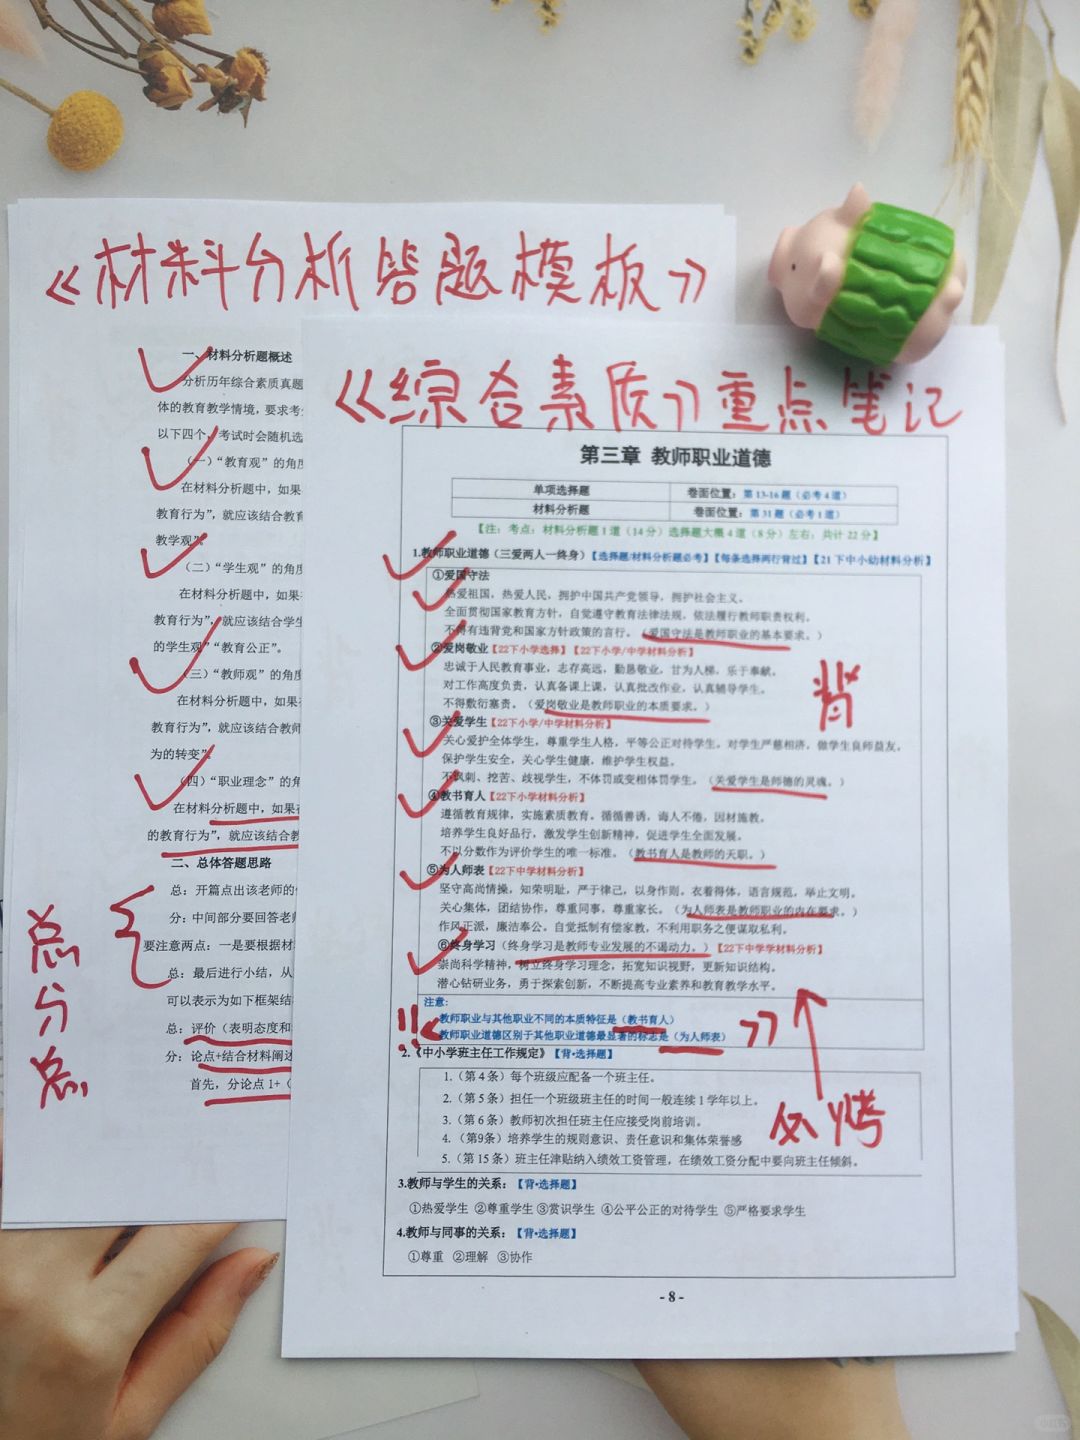 《材料分析答题模板》
一、材料分析题概述
分析历年综合素质真题
体的教育教学情境，要求考
以下四个，考试时会随机选
（一）“教育观”的角度
在材料分析题中，如果
教育行为”，就应该结合教育
教学观”。
（二）“学生观”的角度
在材料分析题中，如果
教育行为”，就应该结合学生
的学生观”“教育公正”。
（三）“教师观”的角度
在材料分析题中，如果
教育行为”，就应该结合教师
为的转变”
（四）“职业理念”的角
在材料分析题中，如果在
的教育行为”，就应该结合教
二、总体答题思路
总：开篇点出该老师的
分：中间部分要回答老师
要注意两点：一是要根据材
总：最后进行小结，从
可以表示为如下框架结
总：评价（表明态度和
分：论点+结合材料阐述
首先，分论点 1+（
总
分
总
《综合素质》重点笔记
第三章 教师职业道德
单项选择题 卷面位置：第 13-16 题（必考 4 道）
材料分析题 卷面位置：第 31 题（必考 1 道）
【注：考点：材料分析题 1 道（14 分）选择题大概 4 道（8 分）左右，共计 22 分】
1.教师职业道德（三爱两人一终身）【选择题/材料分析题必考】【每条选择两行背过】【21 下中小幼材料分析】
①爱国守法
热爱祖国，热爱人民，拥护中国共产党领导，拥护社会主义。
全面贯彻国家教育方针，自觉遵守教育法律法规，依法履行教师职责权利。
不得有违背党和国家方针政策的言行。（爱国守法是教师职业的基本要求。）
②爱岗敬业【22下小学选择】【22下小学/中学材料分析】
忠诚于人民教育事业，志存高远，勤恳敬业，甘为人梯，乐于奉献。
对工作高度负责，认真备课上课，认真批改作业，认真辅导学生。
不得敷衍塞责。（爱岗敬业是教师职业的本质要求。）
背
③关爱学生【22下小学/中学材料分析】
关心爱护全体学生，尊重学生人格，平等公正对待学生，对学生严慈相济，做学生良师益友。
保护学生安全，关心学生健康，维护学生权益。
不讽刺、挖苦、歧视学生，不体罚或变相体罚学生。（关爱学生是师德的灵魂。）
④教书育人【22下小学材料分析】
遵循教育规律，实施素质教育。循循善诱，诲人不倦，因材施教。
培养学生良好品行，激发学生创新精神，促进学生全面发展。
不以分数作为评价学生的唯一标准。（教书育人是教师的天职。）
⑤为人师表【22下中学材料分析】
坚守高尚情操，知荣明耻，严于律己，以身作则。衣着得体，语言规范，举止文明。
关心集体，团结协作，尊重同事，尊重家长。（为人师表是教师职业的内在要求。）
作风正派，廉洁奉公。自觉抵制有偿家教，不利用职务之便谋取私利。
⑥终身学习（终身学习是教师专业发展的不竭动力。）【22下中学学材料分析】
崇尚科学精神，树立终身学习理念，拓宽知识视野，更新知识结构。
潜心钻研业务，勇于探索创新，不断提高专业素养和教育教学水平。
注意：
教师职业与其他职业不同的本质特征是（教书育人）
教师职业道德区别于其他职业道德最显著的标志是（为人师表）
2.《中小学班主任工作规定》【背·选择题】
1.（第 4 条）每个班级应配备一个班主任。
2.（第 5 条）担任一个班级班主任的时间一般连续 1 学年以上。
3.（第 6 条）教师初次担任班主任应接受岗前培训。
4.（第9条）培养学生的规则意识、责任意识和集体荣誉感
5.（第 15 条）班主任津贴纳入绩效工资管理，在绩效工资分配中要向班主任倾斜。
必烤
3.教师与学生的关系：【背·选择题】
①热爱学生 ②尊重学生 ③赏识学生 ④公平公正的对待学生 ⑤严格要求学生
4.教师与同事的关系：【背·选择题】
①尊重 ②理解 ③协作
- 8 -